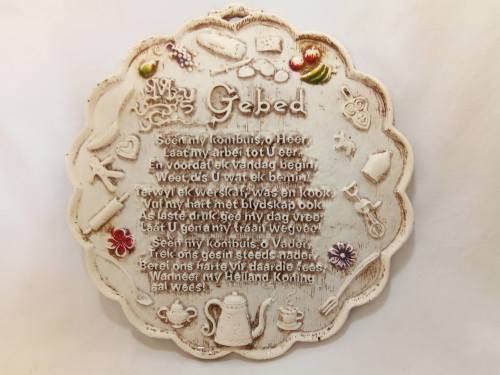 My Gebed
Seën my kombuis, o Heer,
Laat my arbei tot U eer,
En voordat ek vandag begin,
Weet dis U wat ek bemin.
Terwyl ek werskaf, was en kook,
Vul my hart met blydskap ook.
As laste druk gee my dag vree
Laat U genme my traan wegvee!
Seën my kombuis, o Vader,
Trek ons gesin steeds nader,
Berei ons harte vir daardie fees,
Wanneer my Heiland Koning
sal wees!